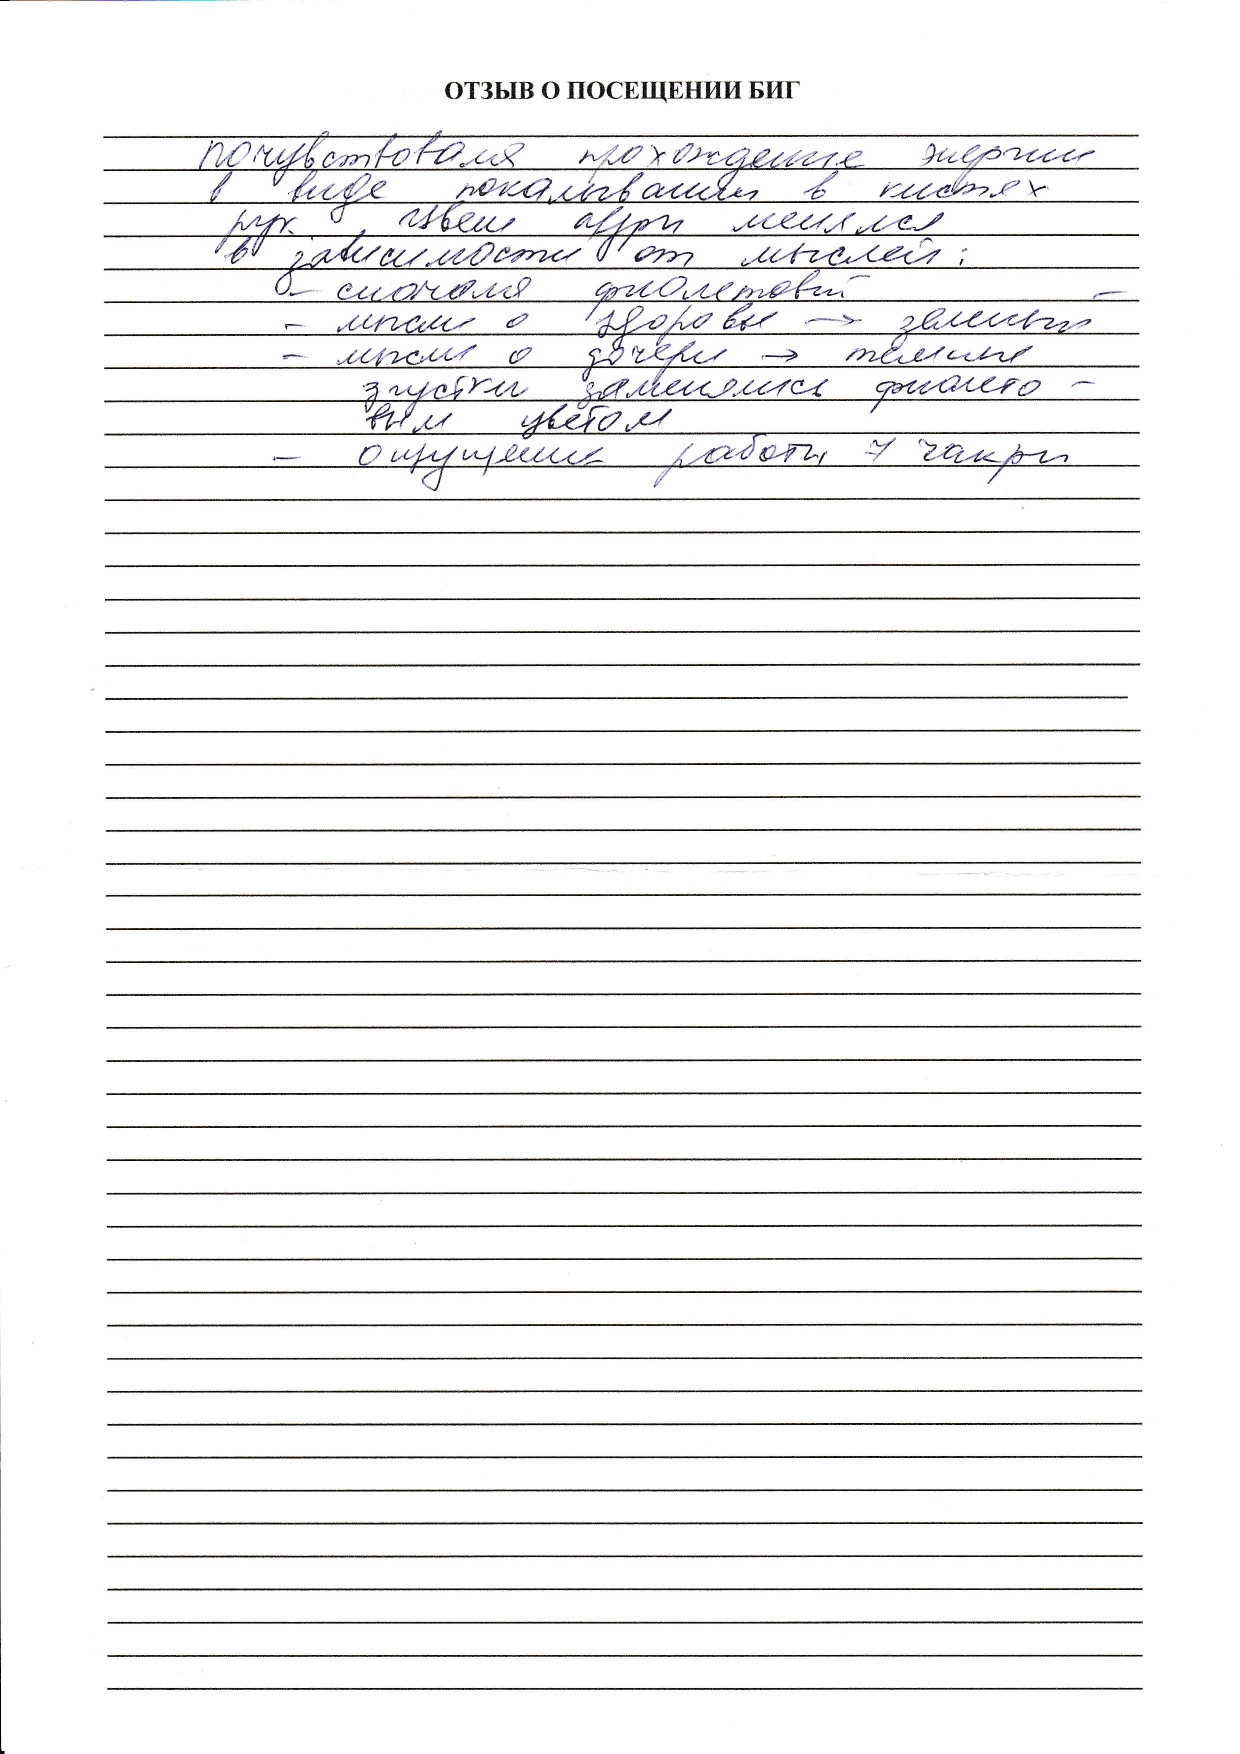 ОТЗЫВ О ПОСЕЩЕНИИ БИГ
почувствовала прохождение энергии
в виде покалывания в кистях
рук. Цвет ауры менялся
в зависимости от мыслей:
- сначала фиолетовый -
- мысли о здоровье → зеленый
- мысли о дочери → темные
згустки заменялись фиолето -
вым цветом
- ощущение работы 7 чакры